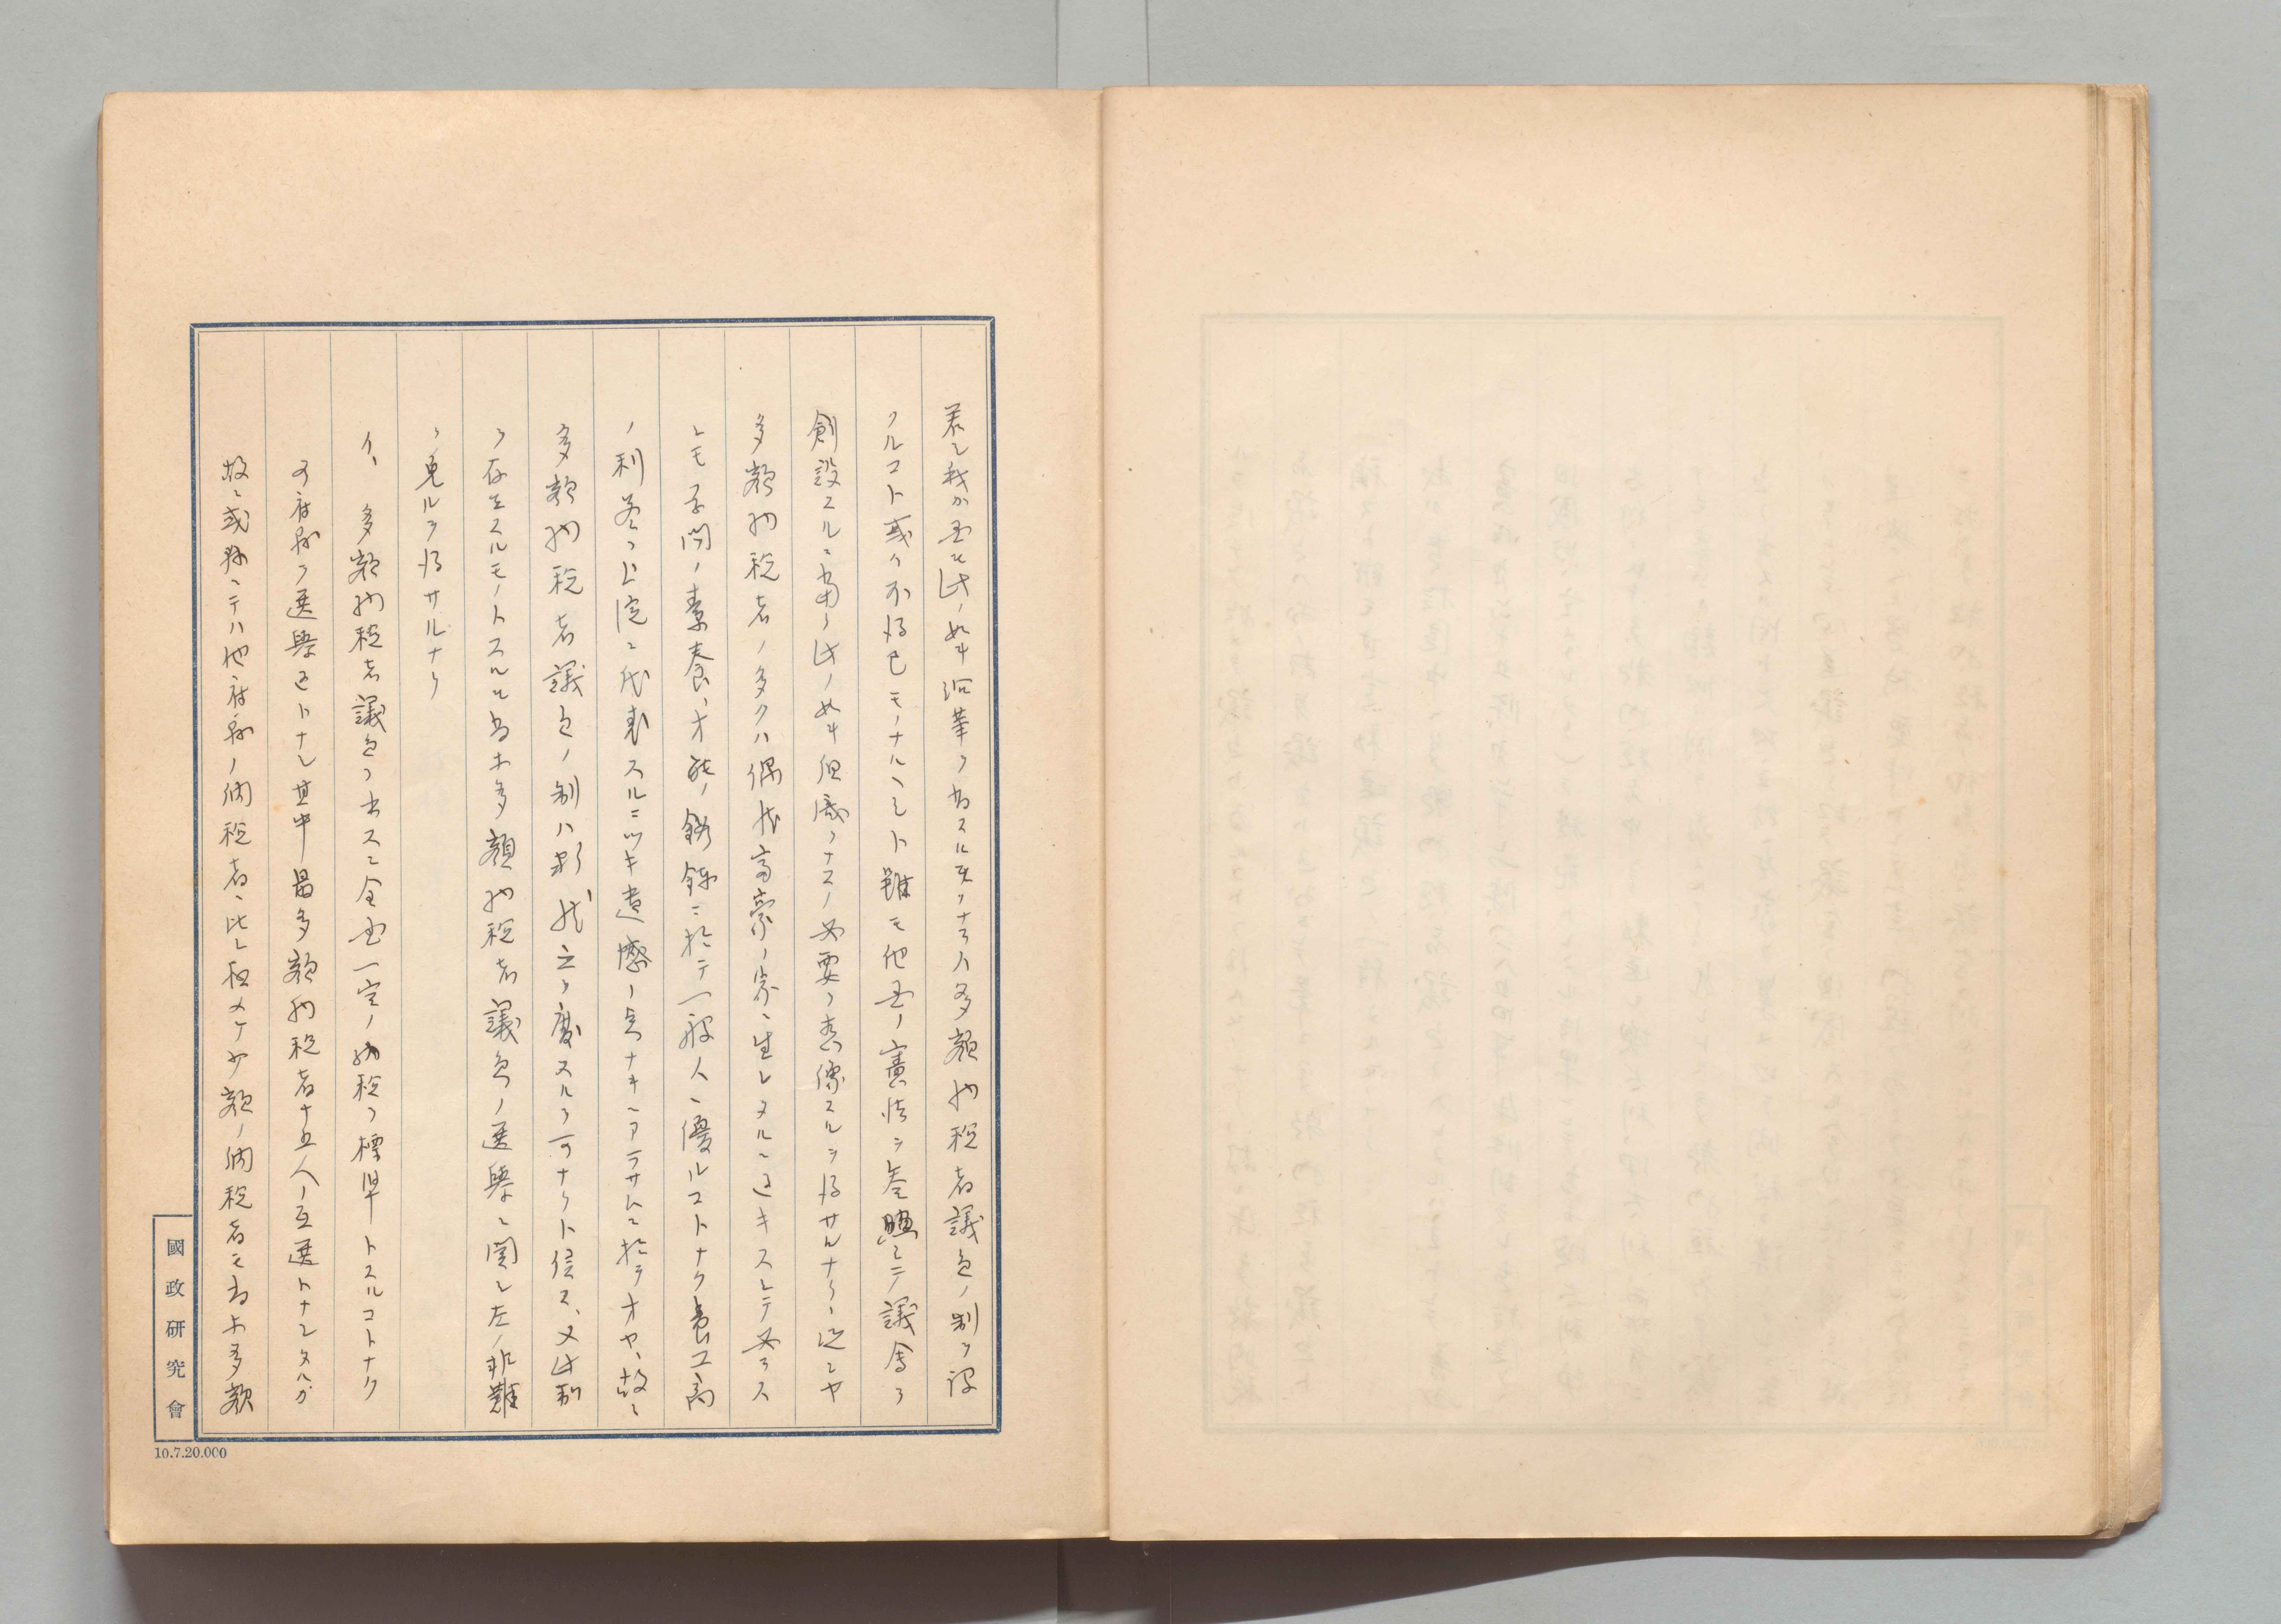 若シ我カ国ニ此ノ如キ沿革ヲ有スル無クナラハ多額納税者議員ノ制ヲ設
クルコト或ハ不得已モノナルヘシト雖モ他国ノ実情ヲ参照シテ議会ヲ
創設スルニ当リ此ノ如キ但シ
多額納税者ノ多クハ偶然富豪ノ家ニ生レタルニ過キスシテ必スス
シモ学問ノ素養、才能ノ鍛錬ニ於テ一般人ニ優ルコトナク農工商
ノ利益ヲ上院ニ代表スルニツキ遺憾ノ点ナキニアラサルニ於テオヤ、故ニ
多額納税者議員ノ制ハ断然之ヲ廃スルヲ可ナリト信ス、又此制
ヲ存在スルモノトスルモ尚ホ多額納税者議員ノ選挙ニ関シ左ノ非難
ヲ免ルヲ得サルナリ
イ、多額納税者議員ヲ出スニ全国一定ノ納税ヲ標準トスルコトナク
各府県ヲ選挙区トナシ其中最多額納税者十五人ノ互選トナシタルガ
故ニ或県ニテハ他府県ノ納税者ニ比シ極メテ少額ノ納税者モ尚ホ多額
國政研究會
10.7.20.000